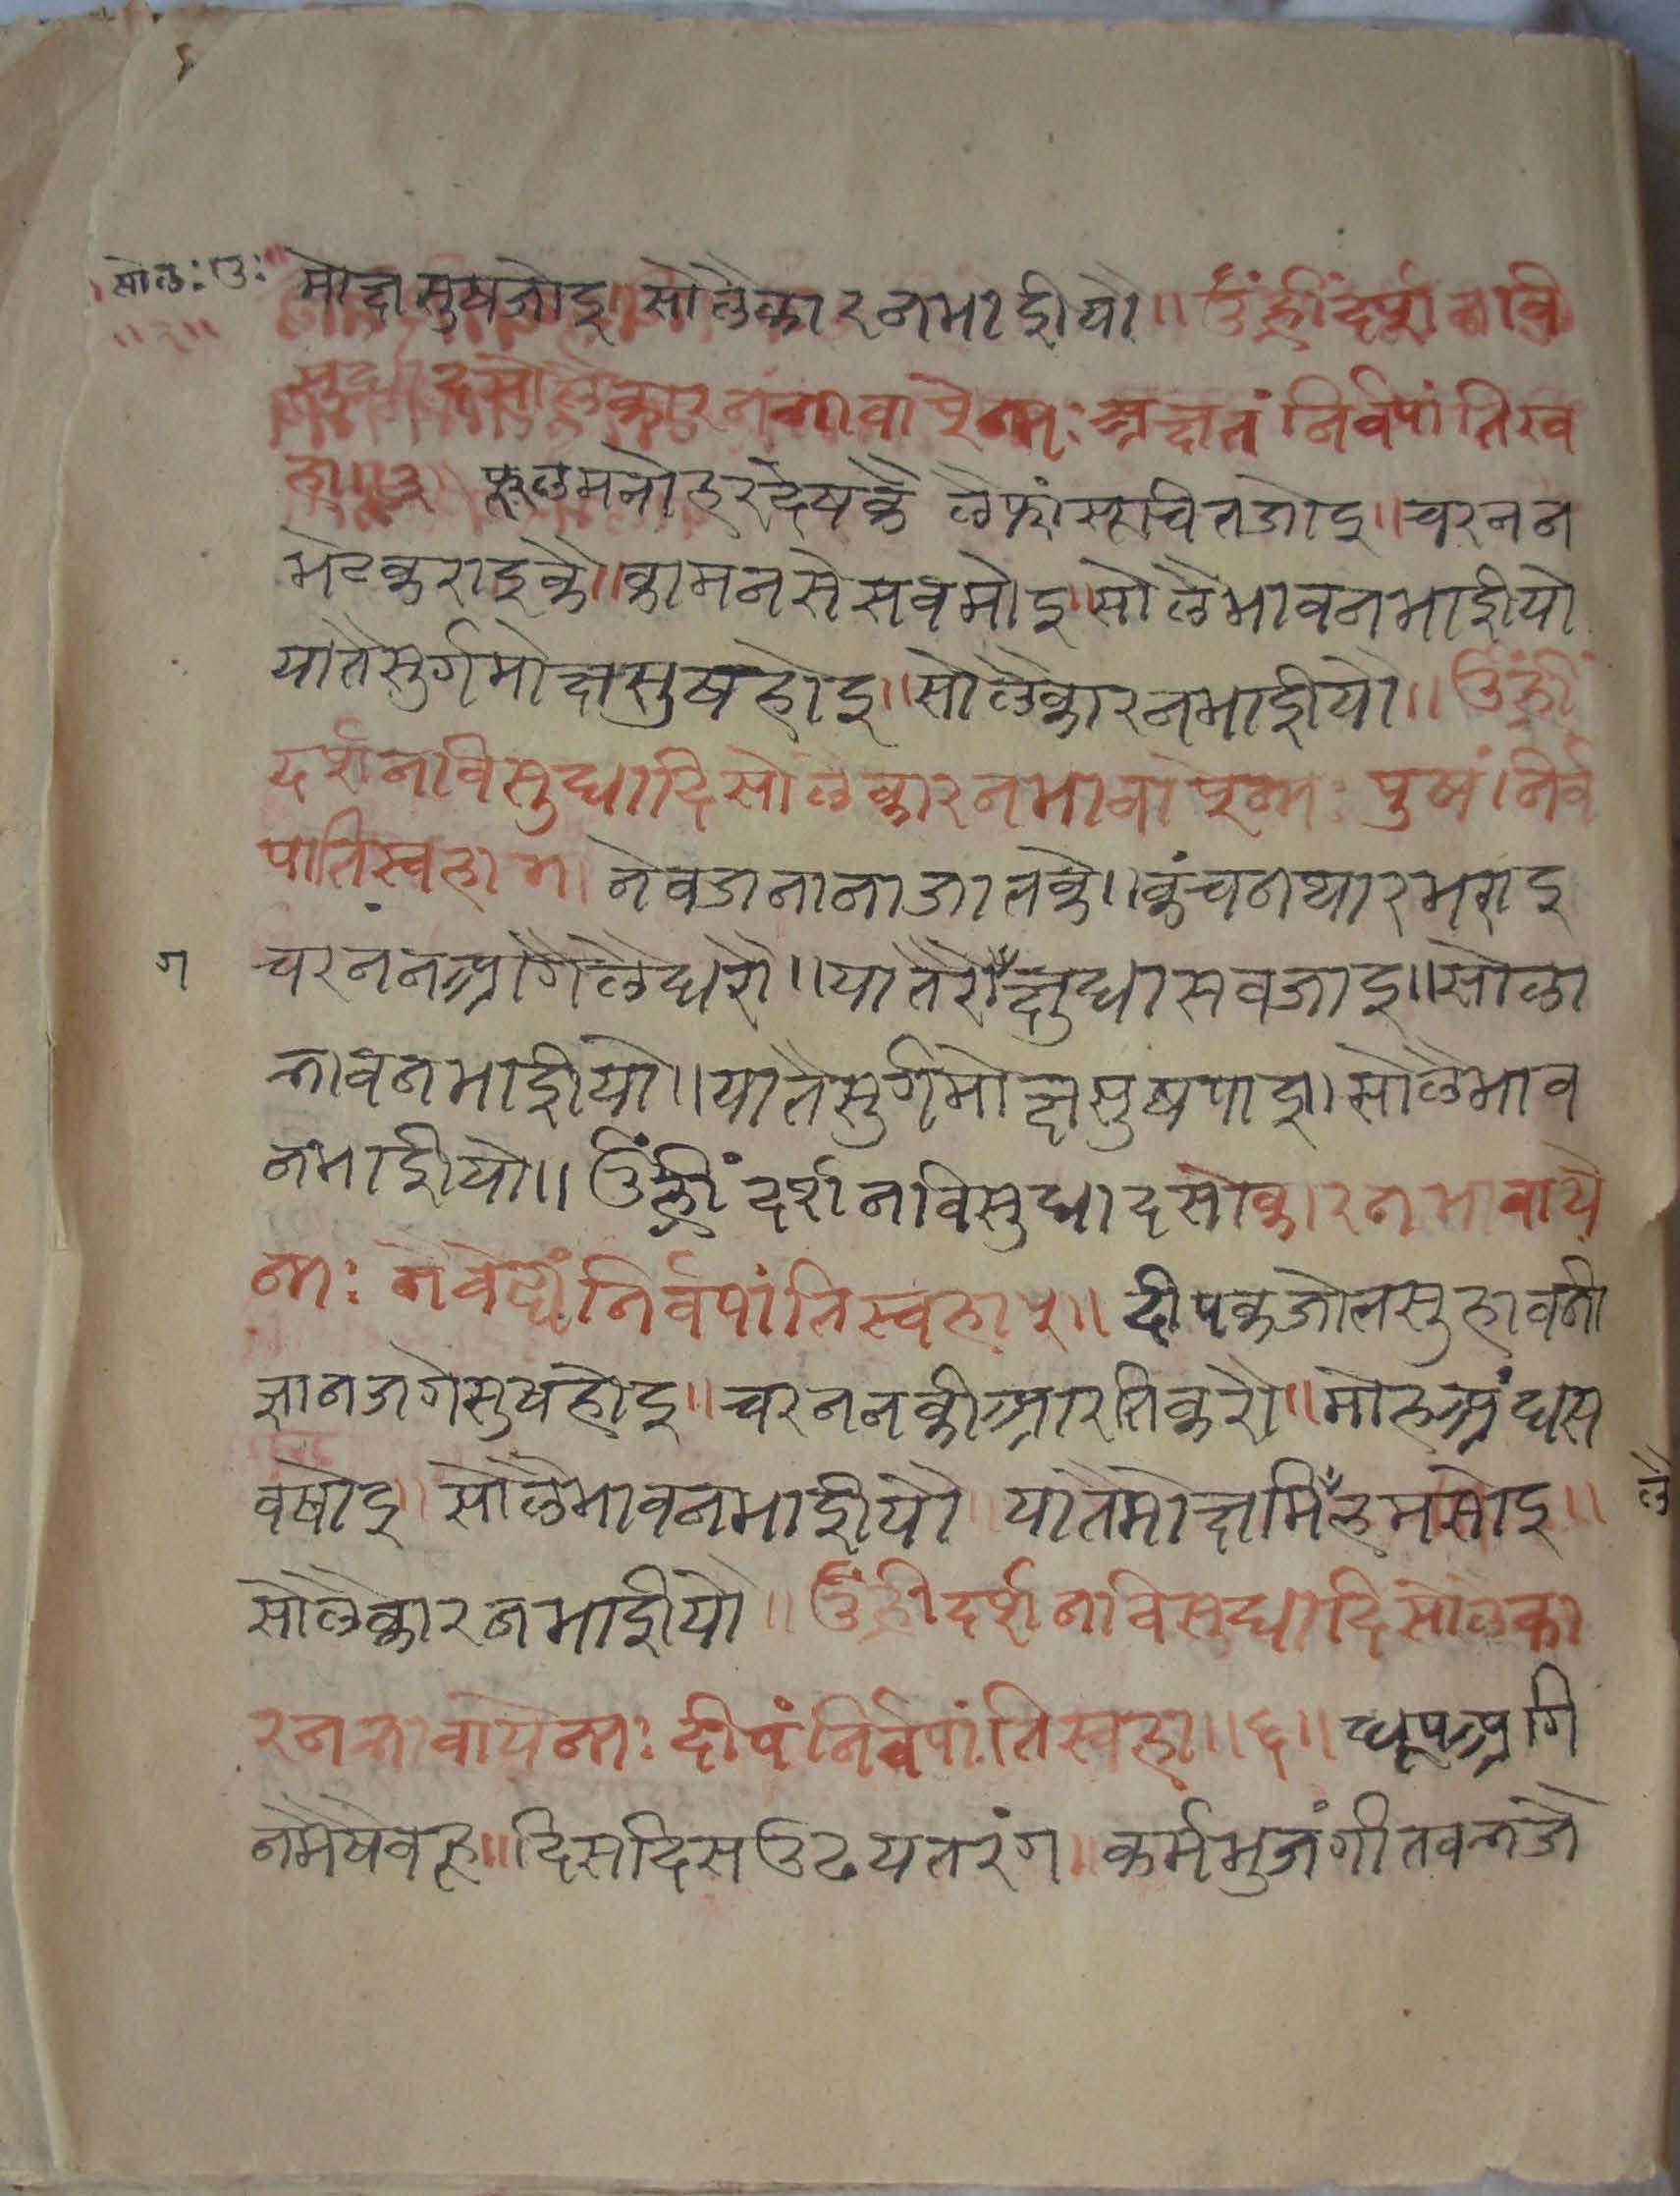 सोलै: पु: मोक्ष सुषजोइ सोलैकारनभाईयौ॥ उँह्रींदर्शनवि
॥२॥
सुद्धादसोलैकारनभावायेनमः अक्षतं निर्वपांतिस्व
हा॥३॥ फूलमनोहरदेषकै लेकरिसुचितजोइ॥चरनन
भेटकराइकै॥कामनसेसवमोइ॥सोलैभावनभाईयो
यातैसुर्गमोक्षसुषहोइ॥सोलैकारनभाईयौ॥ उँह्रीं
दर्शनविसुधादिसोलैकारनभावायेनमः पुष्पं निर्व
पातिस्वहा॥४॥ नेवजनानाजातके॥कंचनथारभराइ
चरननआगैलेधरौ॥यातैरोँक्षुधासवजाइ॥सोला
ग
भावनभाईयो॥यातैसुर्गमोक्षसुषपाइ॥सोलैभाव
नभाईयो॥ उँह्रीं दर्शनविसुधादसोकारनभावाये
नमः नैवेद्यंनिर्वपांतिस्वहा५॥ दीपकजोतसुहावनी
ज्ञानजगेसुषहोइ॥चरननकीआरतिकरौ॥मोहअंधस
वषोइ॥सोलैभावनभाईयौ॥यातैमोक्षमिँहमसोइ॥
लै
सोलैकारनभाईयौ॥ उँह्रींदर्शनविसुधादिसोलैका
रनभावायेनमः दीपंनिर्वपांतिस्वहा॥६॥ धूपअगि
नमैषेवहू॥दिसदिसउठयतरंग॥कर्मभुजंगीतवभजै